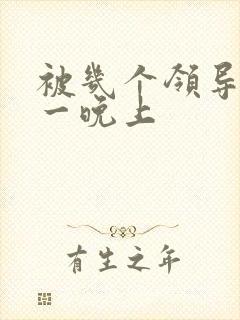 被幾个領导
一晚上
有生之年